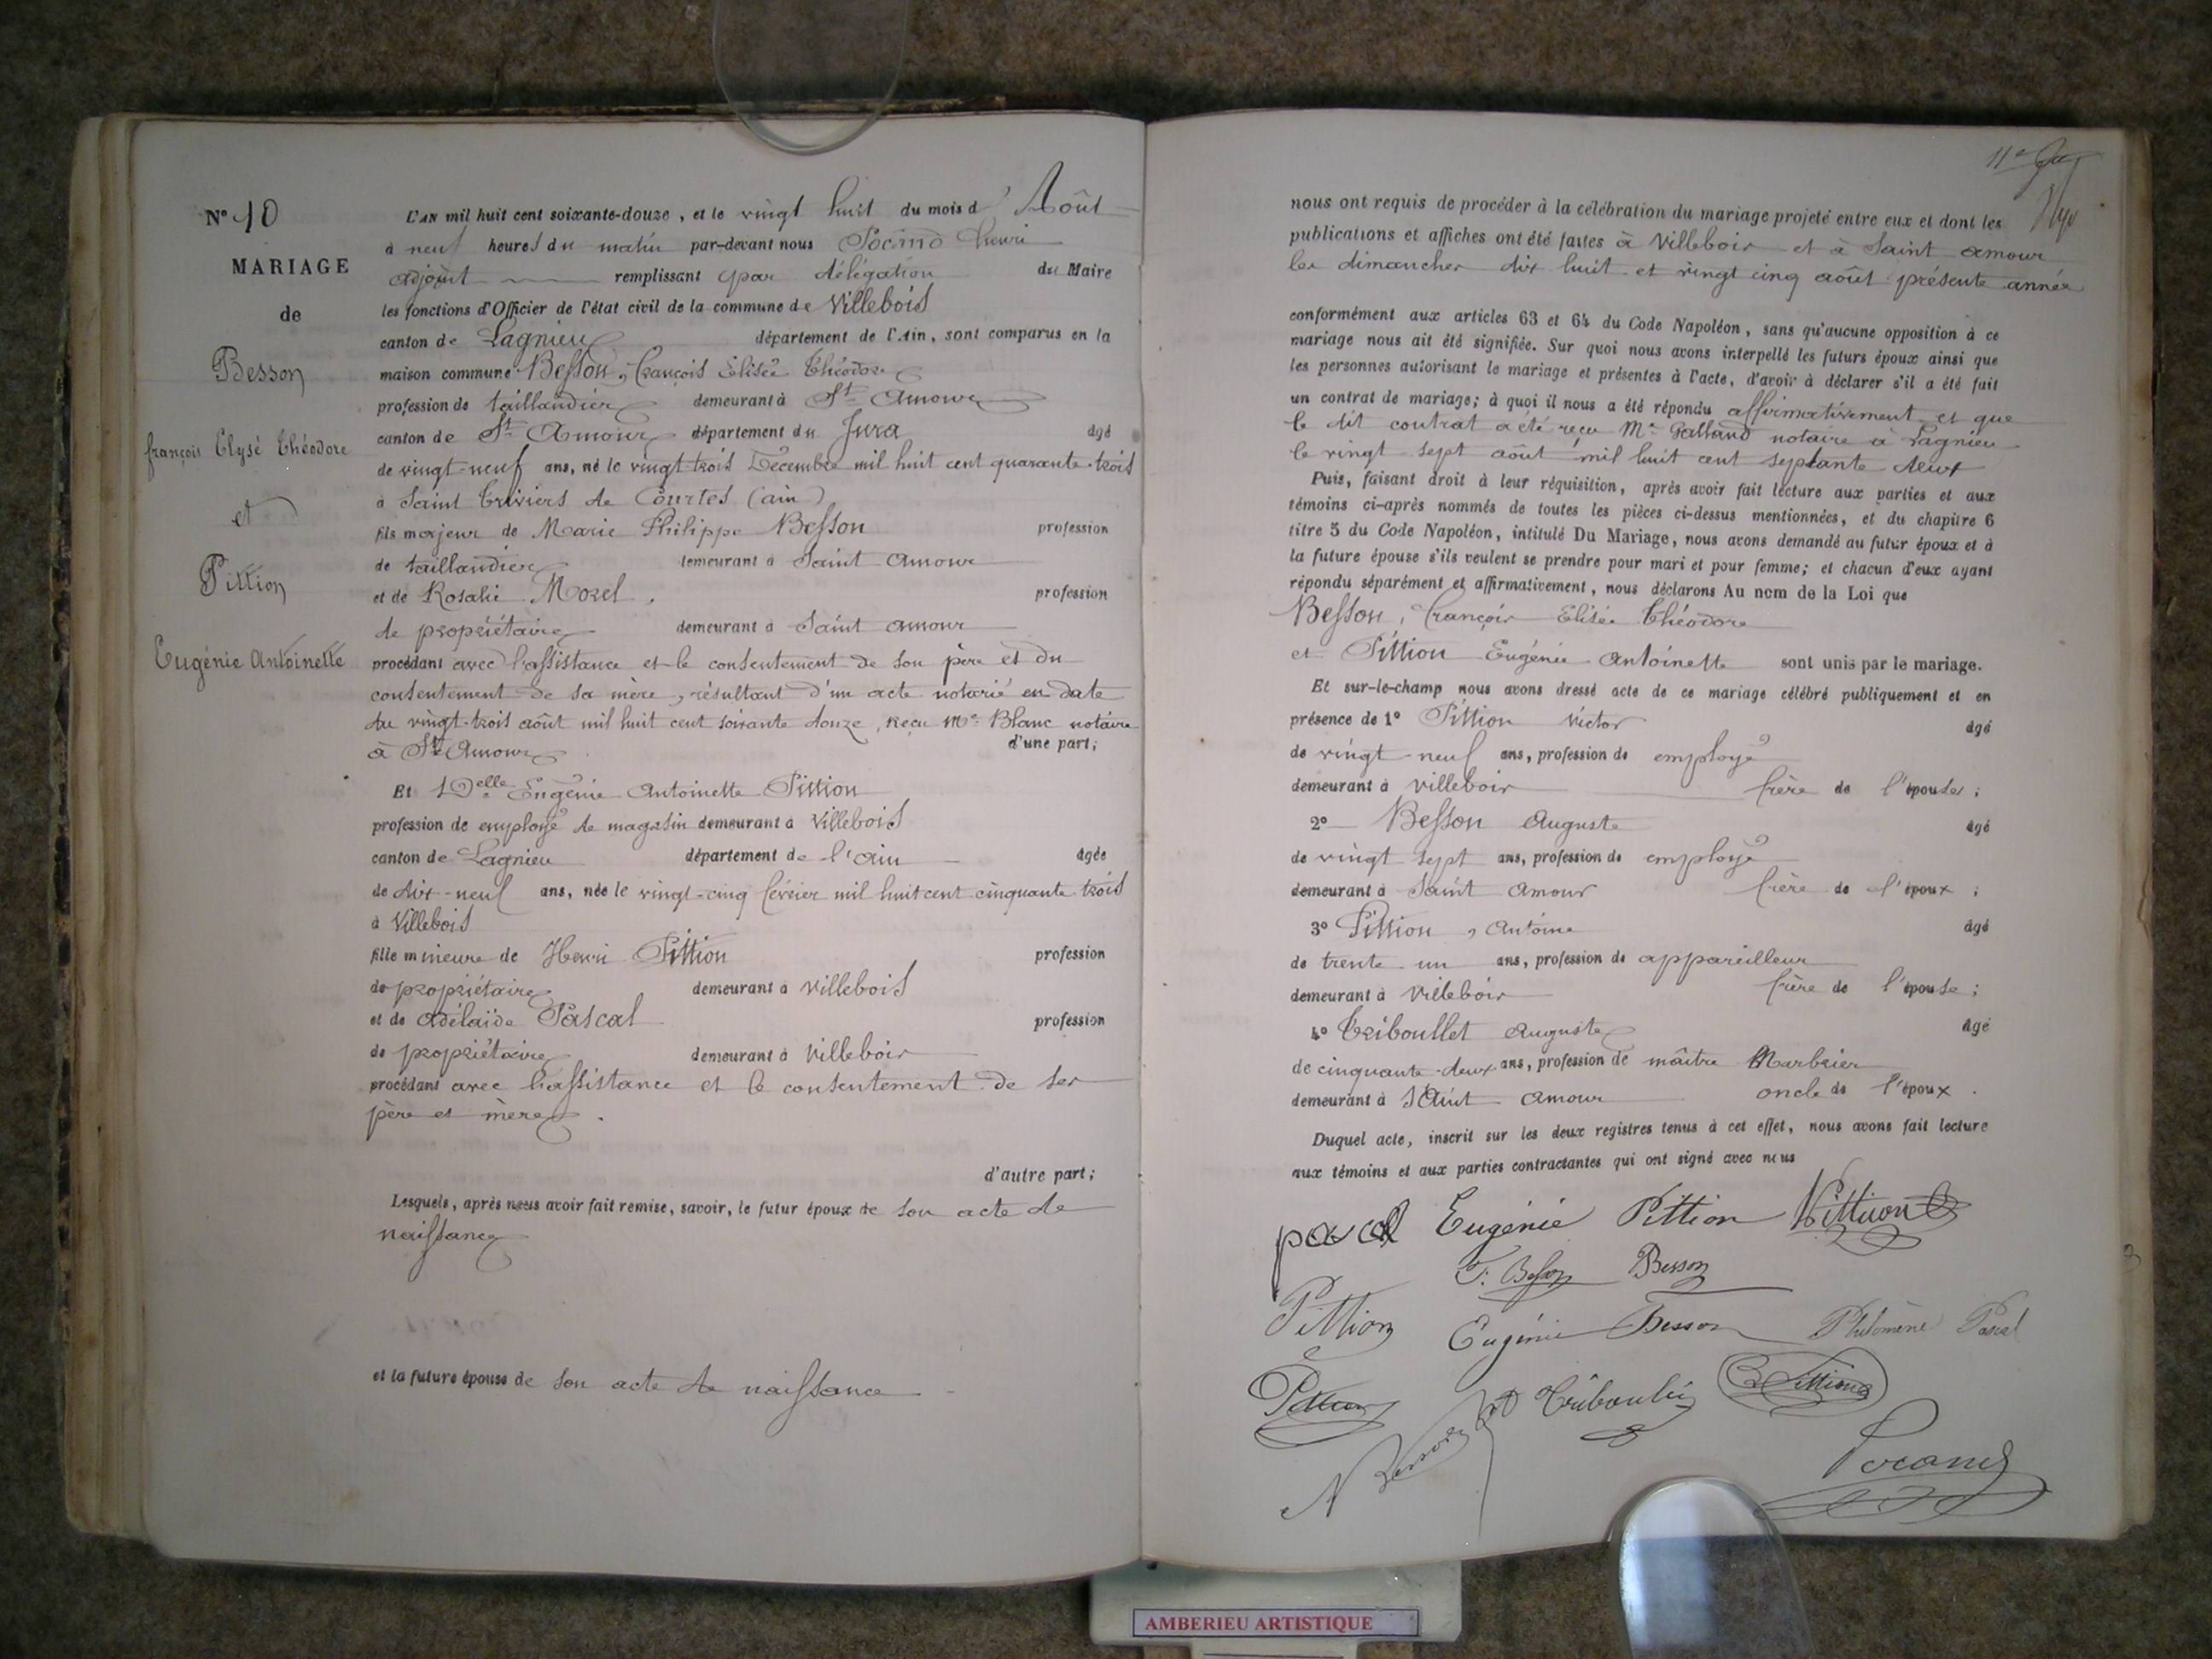 N° 10
MARIAGE
de
Besson
françois Elysé Théodore
et
Pittion
Eugénie Antoinette
L'AN mil huit cent soixante-douze, et le vingt huit du mois d' Août
à neuf heures du matin par-devant nous henri
adjoint remplissant par délégation du Maire
les fonctions d'Officier de l'état civil de la commune de Villebois
canton de Lagnieu département de l'Ain, sont comparus en la
maison commune Besson, François Elisée Théodore
profession de taillandier demeurant à St Amour
canton de St Amour département du Jura âgé
de vingt-neuf ans, né le vingt trois Décembre mil huit cent quarante-trois
à Saint Triviers de Courtes (ain)
fils majeur de Marie Philippe Besson profession
de taillandier demeurant à Saint Amour
et de Rosalie Morel, profession
de propriétaire demeurant à Saint amour
procédant avec l'assistance et le consentement de son père et du
consentement de sa mère, résultant d'un acte notarié en date
du vingt-trois août mil huit cent soixante douze, reçu Me Blanc notaire
à St Amour. d'une part;
Et Delle Eugénie Antoinette Pittion
profession de employé de magasin demeurant à Villebois
canton de Lagnieu département de l'ain âgée
de dix-neuf ans, née le vingt-cinq février mil huit cent cinquante trois
à Villebois
fille mineure de Henri Pittion profession
de propriétaire demeurant à Villebois
et de Adélaïde Pascal profession
de propriétaire demeurant à Villebois
procédant avec l'assistance et le consentement de ses
père et mère.
d'autre part;
Lesquels, après nous avoir fait remise, savoir, le futur époux de son acte de
naissance
et la future épouse de son acte de naissance
nous ont requis de procéder à la célébration du mariage projeté entre eux et dont les
publications et affiches ont été faites à Villebois et à Saint amour
les dimanches dix huit et vingt cinq août présente année
conformément aux articles 63 et 64 du Code Napoléon, sans qu'aucune opposition à ce
mariage nous ait été signifiée. Sur quoi nous avons interpellé les futurs époux ainsi que
les personnes autorisant le mariage et présentes à l'acte, d'avoir à déclarer s'il a été fait
un contrat de mariage; à quoi il nous a été répondu affirmativement et que
le dit contrat a été reçu Me Galland notaire à Lagnieu
le vingt sept août mil huit cent septante deux
Puis, faisant droit à leur réquisition, après avoir fait lecture aux parties et aux
témoins ci-après nommés de toutes les pièces ci-dessus mentionnées, et du chapitre 6
titre 5 du Code Napoléon, intitulé Du Mariage, nous avons demandé au futur époux et à
la future épouse s'ils veulent se prendre pour mari et pour femme; et chacun d'eux ayant
répondu séparément et affirmativement, nous déclarons Au nom de la Loi que
Besson, François Elisée Théodore
et Pittion Eugénie Antoinette sont unis par le mariage.
Et sur-le-champ nous avons dressé acte de ce mariage célébré publiquement et en
présence de 1° Pittion Victor âgé
de vingt-neuf ans, profession de employé
demeurant à villebois frère de l'épouse;
2° Besson Auguste âgé
de vingt sept ans, profession de employé
demeurant à Saint Amour frère de l'époux;
3° Pittion, Antoine âgé
de trente un ans, profession de appareilleur
demeurant à Villebois frère de l'épouse;
4° Triboullet Auguste âgé
de cinquante-deux ans, profession de maître Marbrier
demeurant à Saint Amour oncle de l'époux.
Duquel acte, inscrit sur les deux registres tenus à cet effet, nous avons fait lecture
aux témoins et aux parties contractantes qui ont signé avec nous
Eugénie Pittion VPittion
T. Besson Besson
Pittion Eugénie Besson Philomène Pascal
Pittion Pittion
A Besson
AMBERIEU ARTISTIQUE